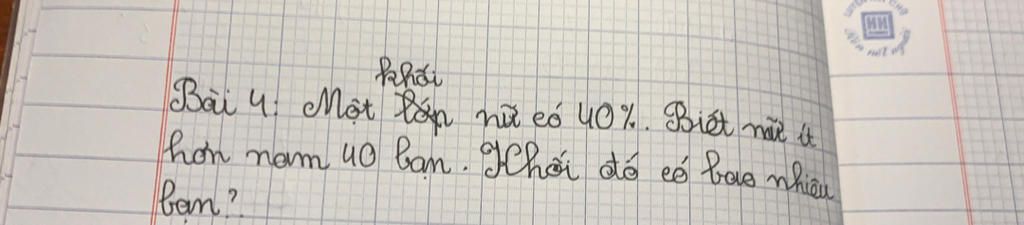 khối
Bài 4: Một lớp nữ có 40%. Biết nữ ít
hơn nam 40 bạn. Khối đó có bao nhiêu
bạn?